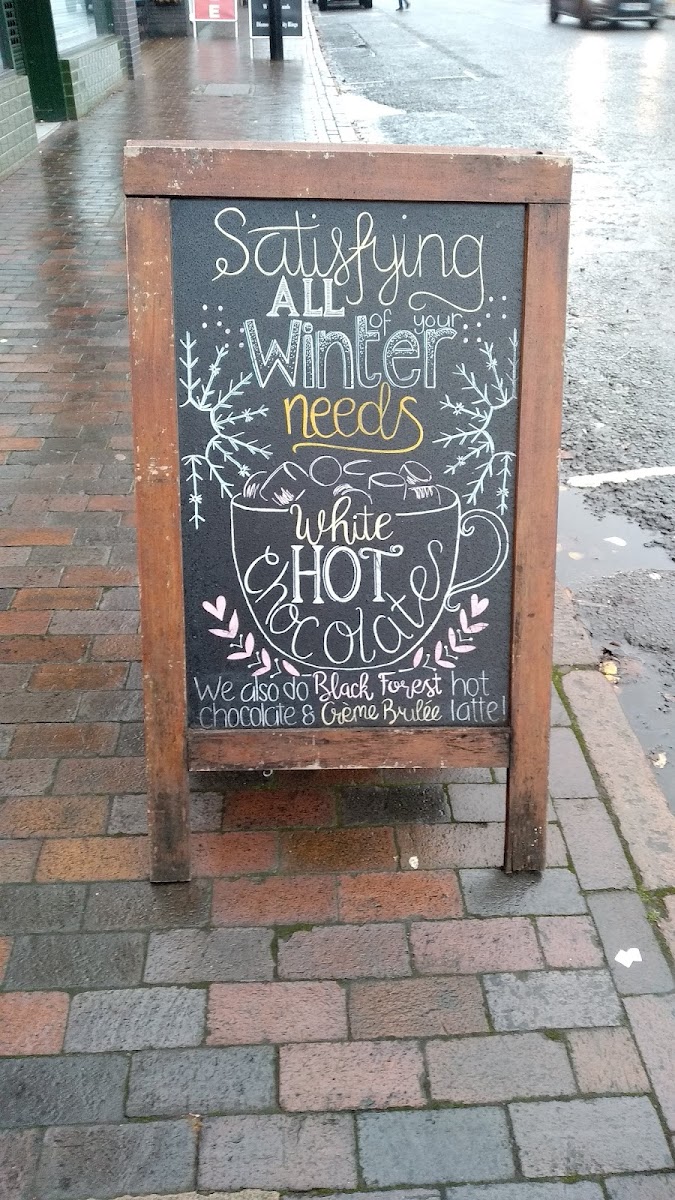 E
Satisfying
ALL
of your
Winter
needs
White
HOT
chocolates
We also do Black Forest hot
chocolate & Crème Brulée latte!